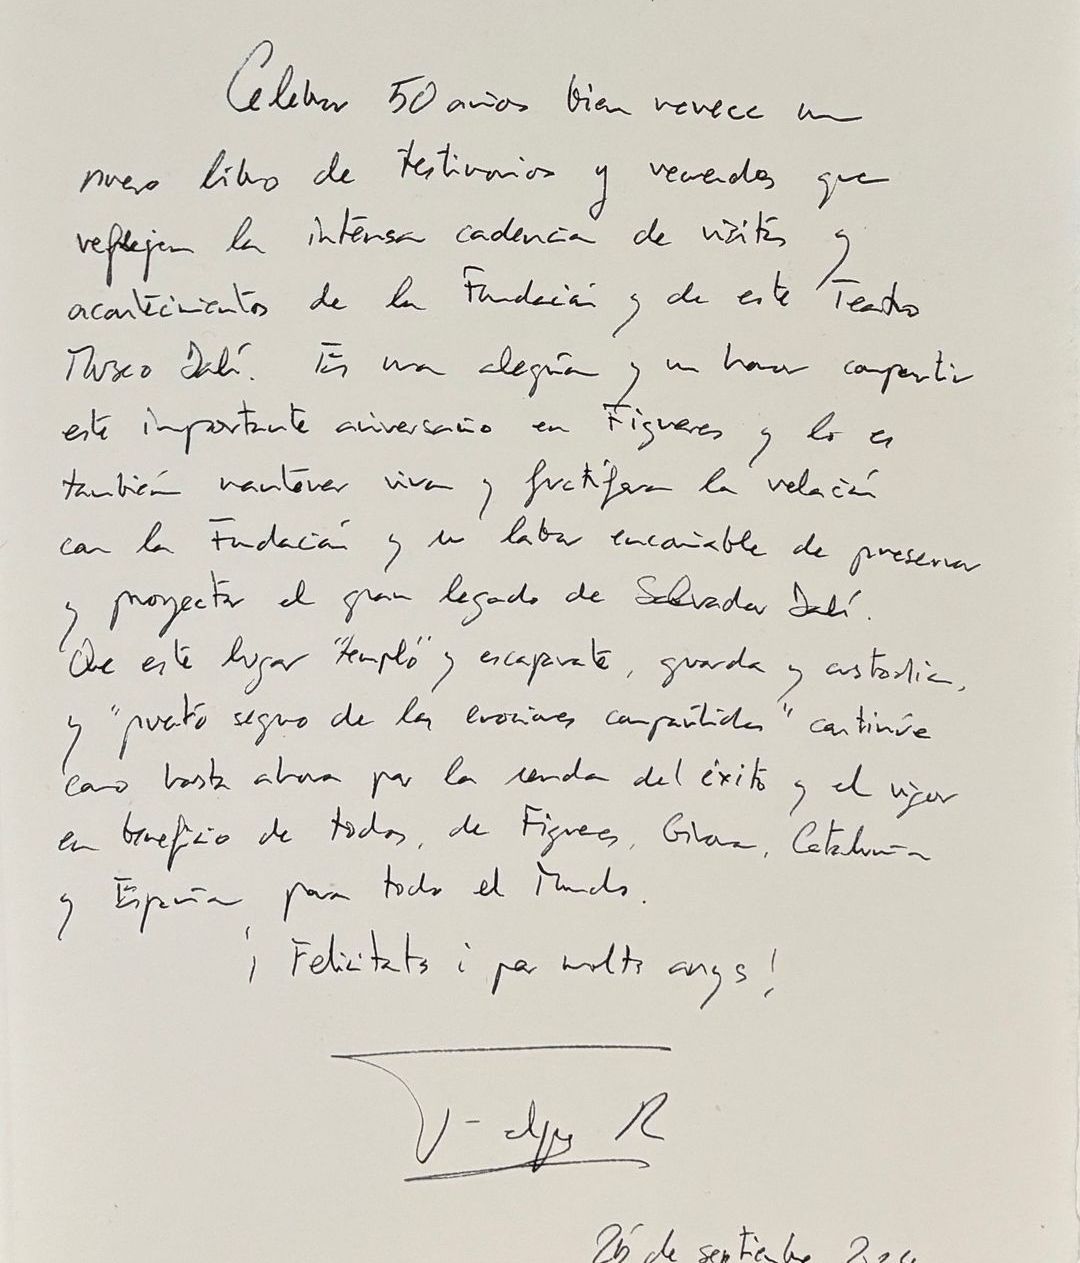 Celebrar 50 años bien merece un
nuevo libro de testimonios y recuerdos que
reflejen la intensa cadencia de visitas y
acontecimientos de la Fundación y de este Teatro
Museo Dalí. Es una alegría y un honor compartir
este importante aniversario en Figueres y lo es
también mantener viva y fructífera la relación
con la Fundación y su labor encomiable de preservar
y proyectar el gran legado de Salvador Dalí.
Que este lugar "templo" y escaparate, guarda y custodia,
y "puerto seguro de las emociones compartidas" continúe
como hasta ahora por la senda del éxito y el vigor
en beneficio de todos, de Figueres, Girona, Cataluña
y España, para todo el Mundo.
¡Felicitats i per molts anys!
Felipe R
26 de septiembre